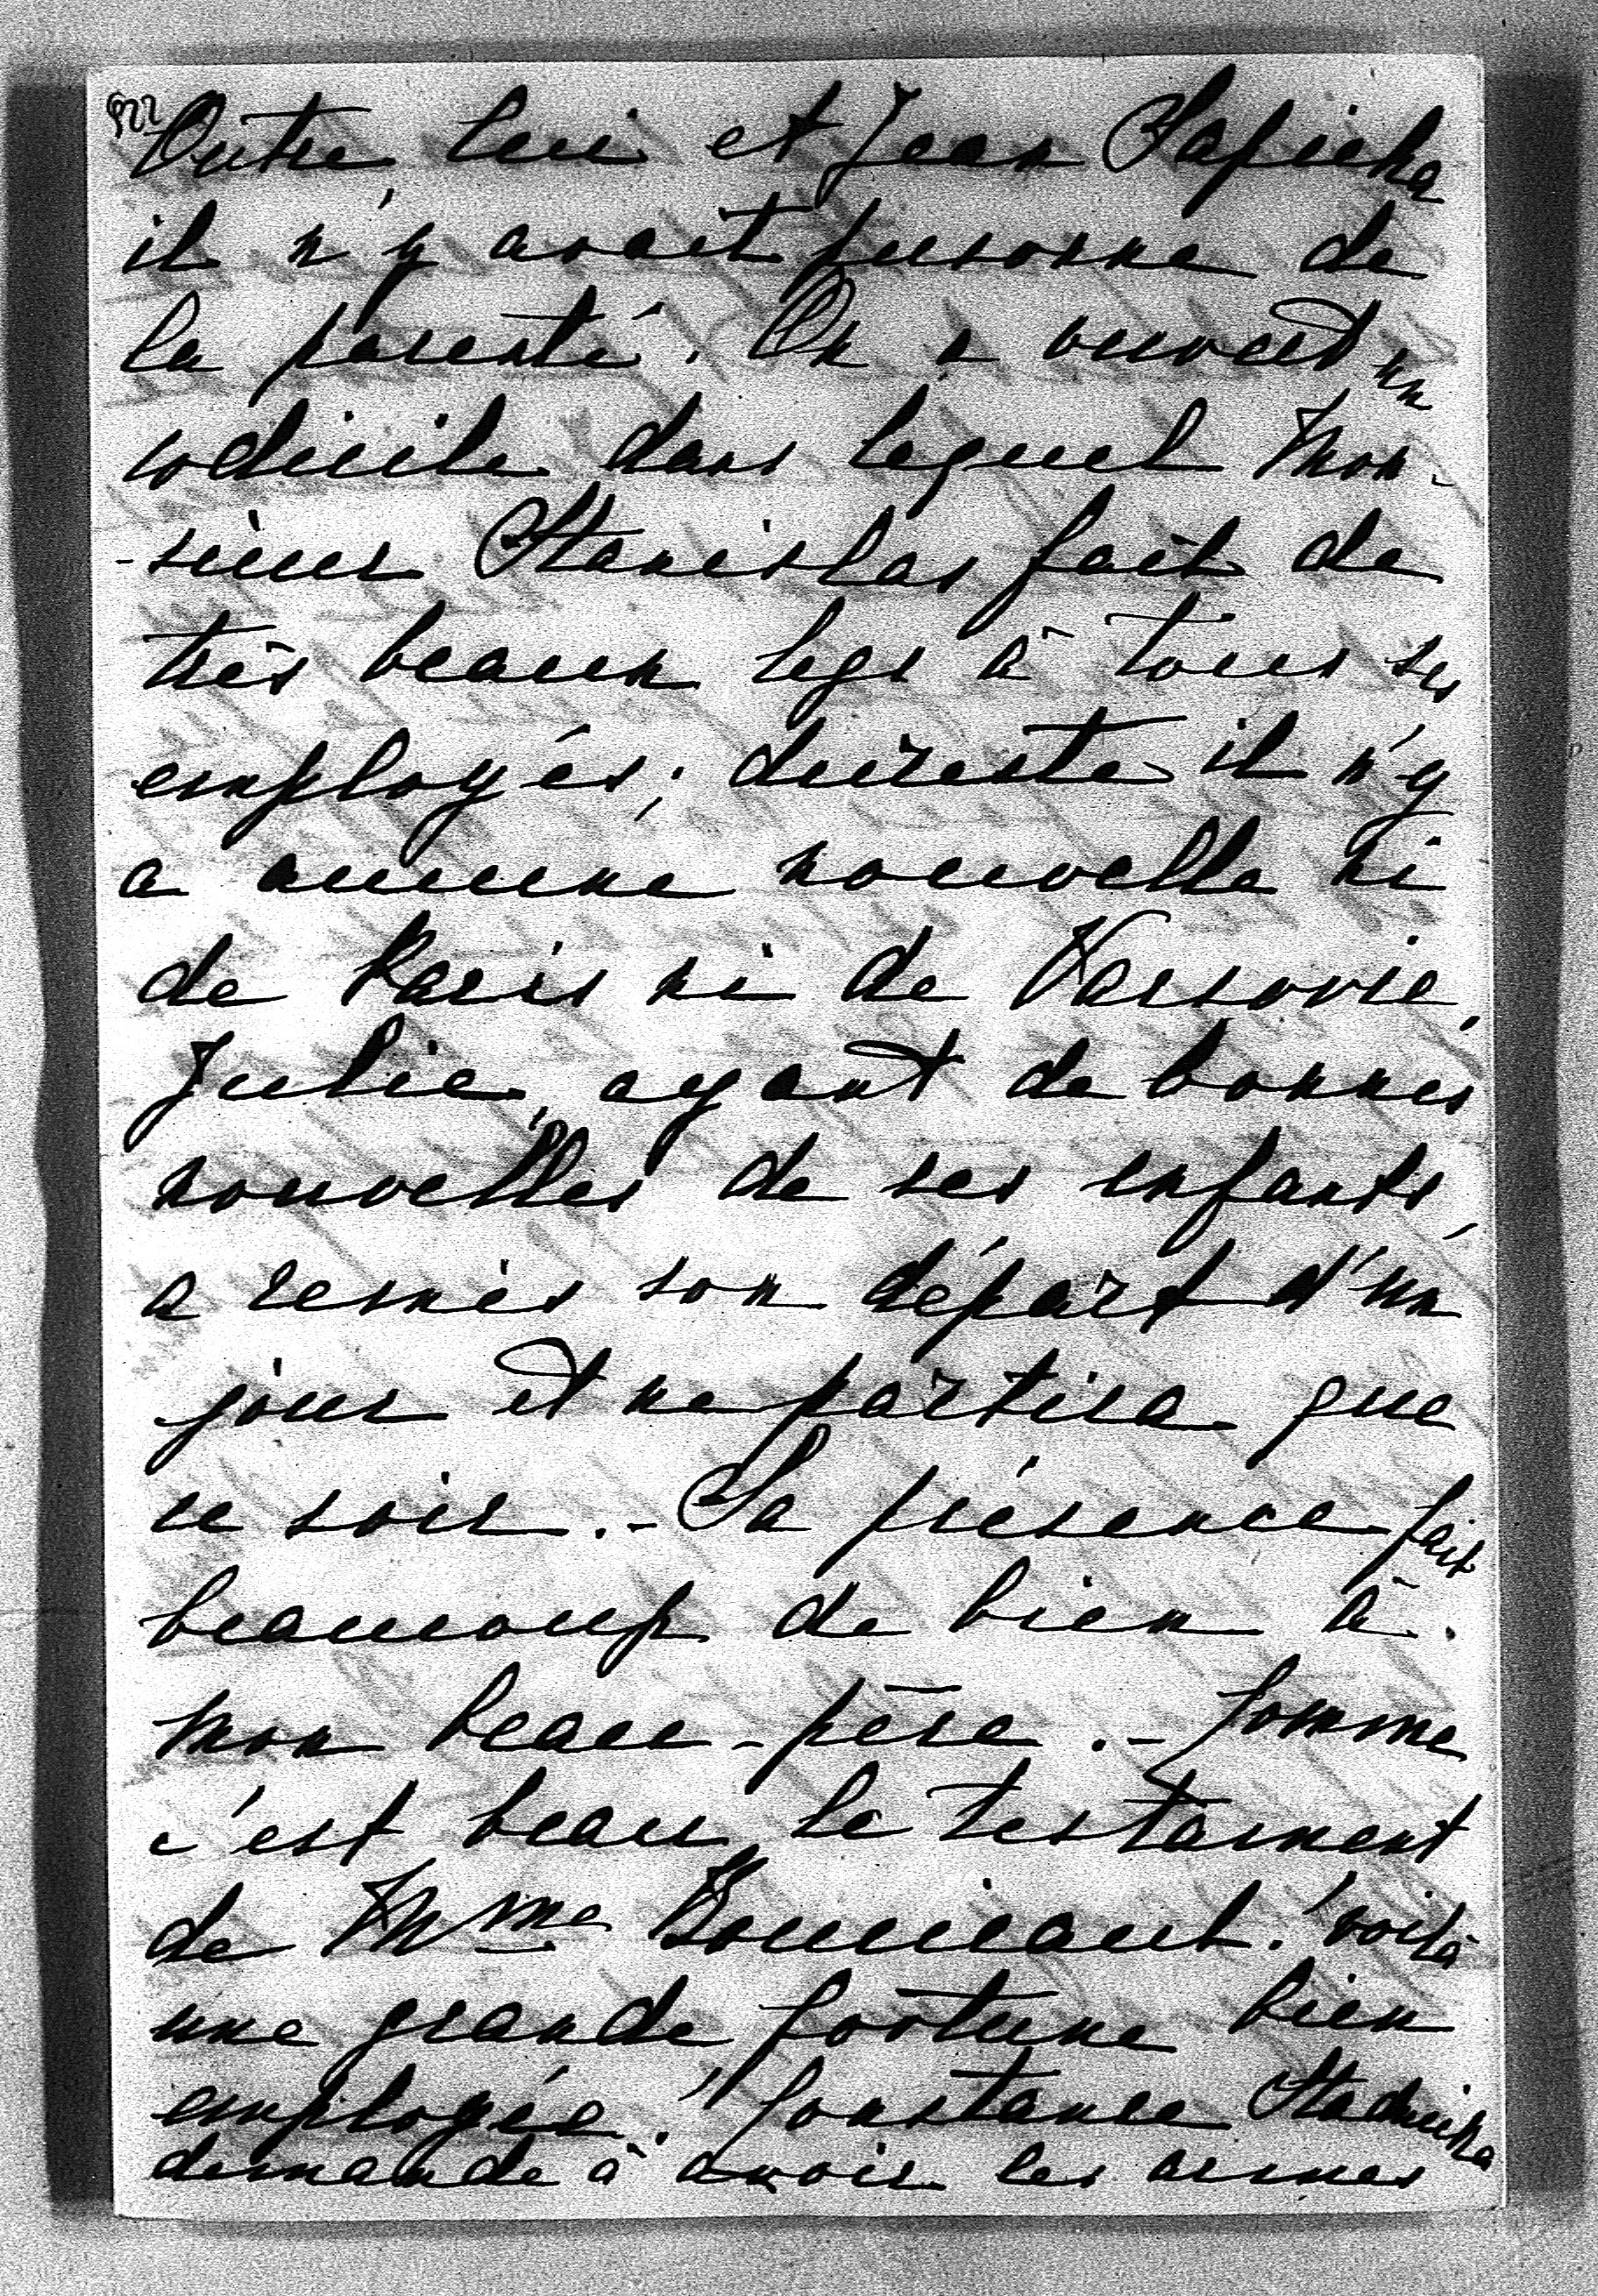 Outre lui et Jean Sapieha
il n'y avait personne de
la parenté. On a ouvert un
codicile dans lequel Mon-
-sieur Stanislas fait de
très beaux legs à tous ses
employés; dureste il n'y
a aucune nouvelle ni
de Paris ni de Varsovie,
Julie, ayant de bonnes
nouvelles de ses enfants,
a remis son départ d'un
jour et ne partira que
ce soir. - Sa présence fait
beaucoup de bien à
mon beau-père. - Comme
c'est beau, le testament
de Mme Boucicaut! voilà
une grande fortune bien
employée! Constance Stadnicka
demande à avoir les armes